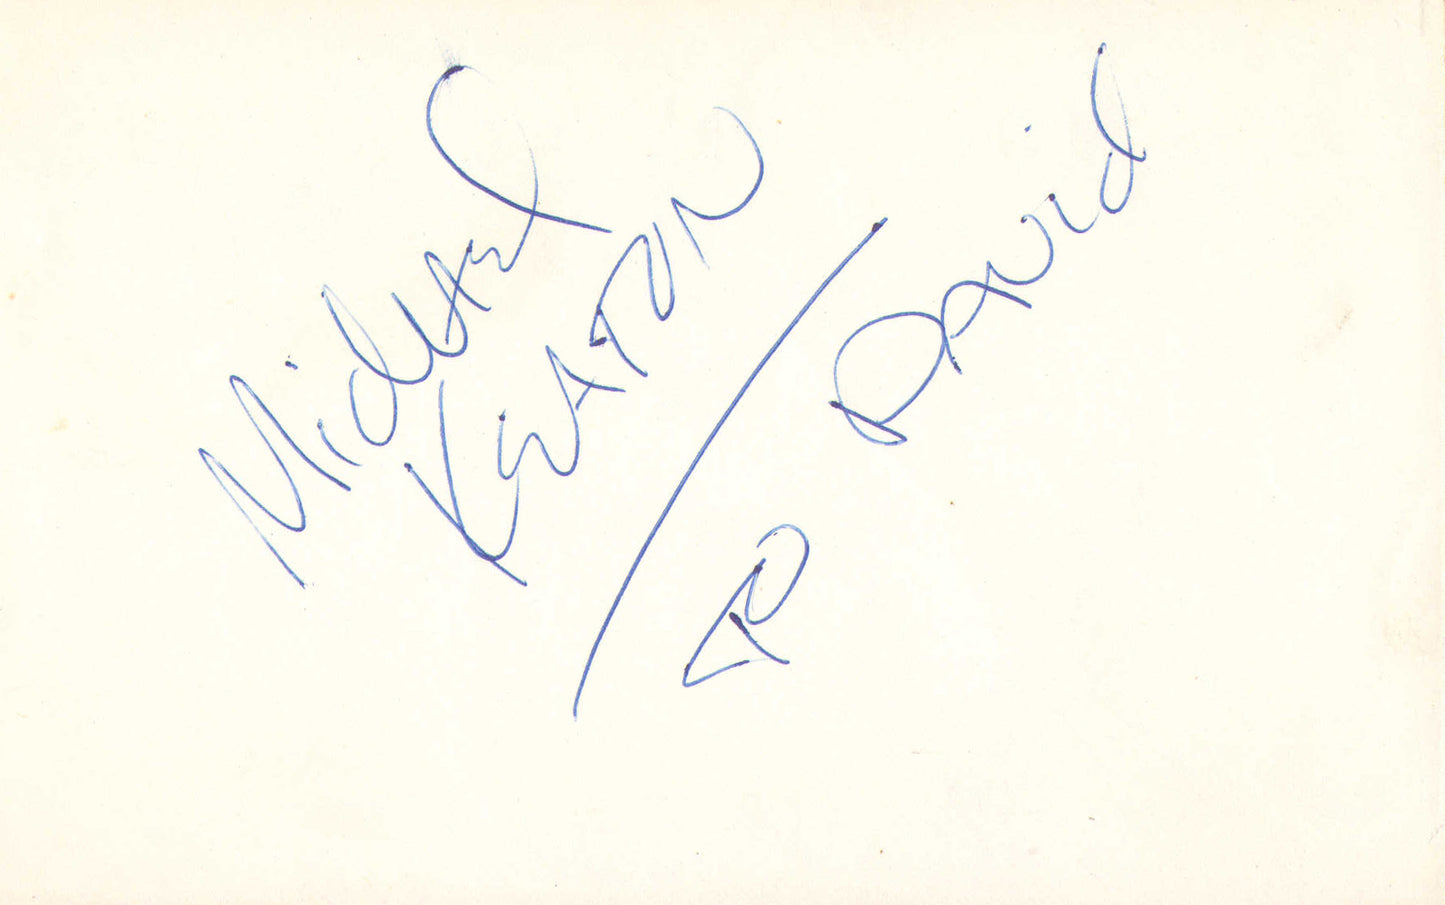 Michael
Keaton
To David